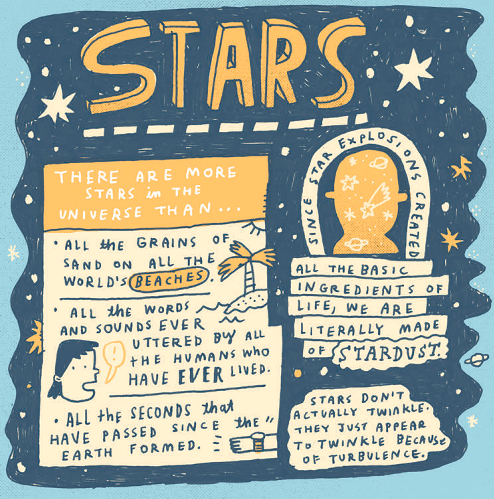 STARS
THERE ARE MORE
STARS in THE
UNIVERSE THAN...
• ALL the GRAINS OF
SAND ON ALL THE
WORLD'S BEACHES.
• ALL the WORDS
AND SOUNDS EVER
UTTERED BY ALL
THE HUMANS WHO
HAVE EVER LIVED.
• ALL the SECONDS that
HAVE PASSED SINCE the
EARTH FORMED.
!
SINCE STAR EXPLOSIONS CREATED
ALL THE BASIC
INGREDIENTS OF
LIFE, WE ARE
LITERALLY MADE
OF STARDUST.
STARS DON'T
ACTUALLY TWINKLE.
THEY JUST APPEAR
TO TWINKLE BECAUSE
OF TURBULENCE.